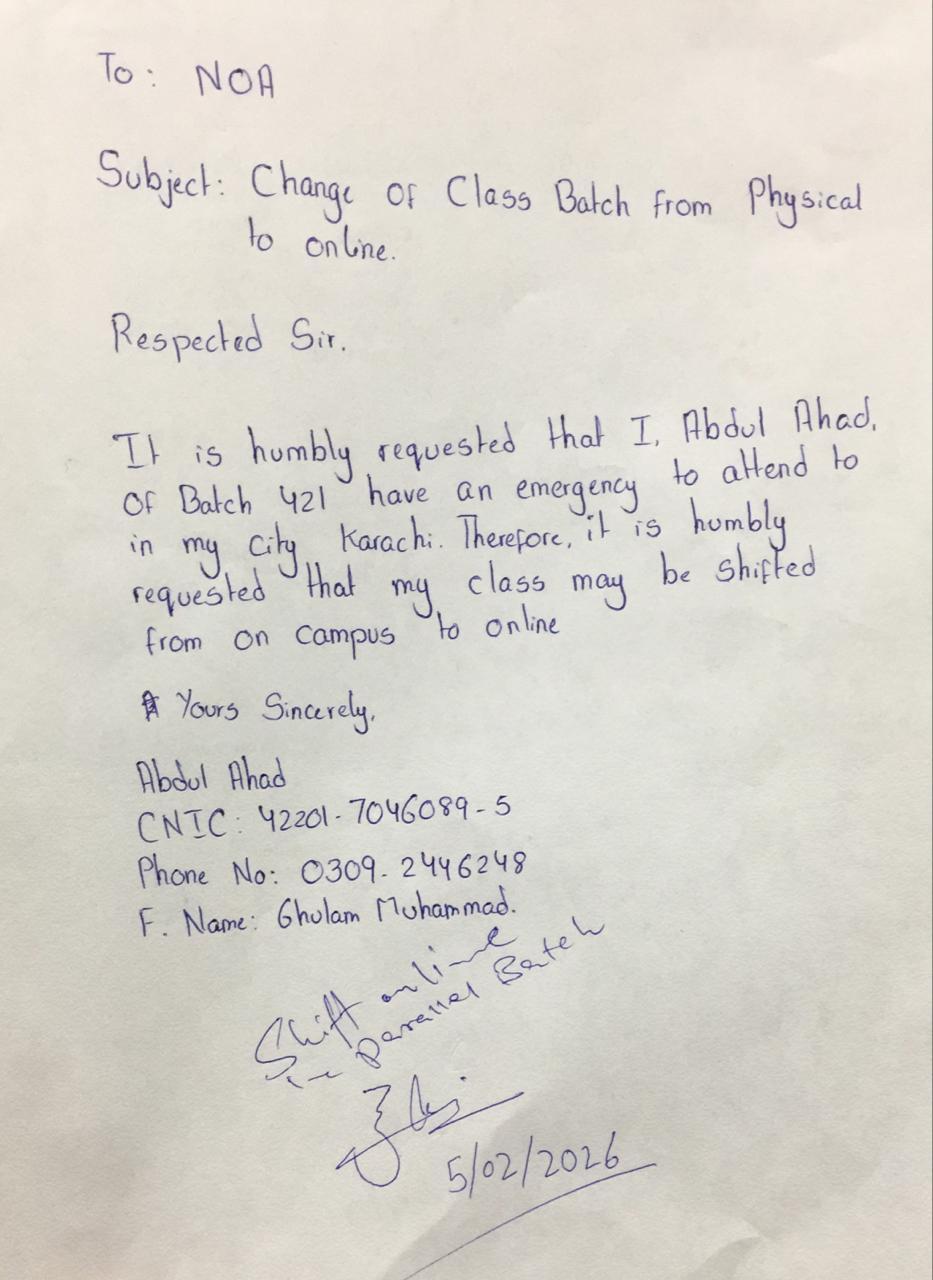 To: NOA
Subject: Change of Class Batch from Physical
to online.
Respected Sir.
It is humbly requested that I, Abdul Ahad,
of Batch 421 have an emergency to attend to
in my city Karachi. Therefore, it is humbly
requested that my class may be shifted
from on campus to online
Yours Sincerely,
Abdul Ahad
CNIC: 42201-7046089-5
Phone No: 0309-2446248
F. Name: Ghulam Muhammad.
Shift online
in Parallel Batch
5/02/2026